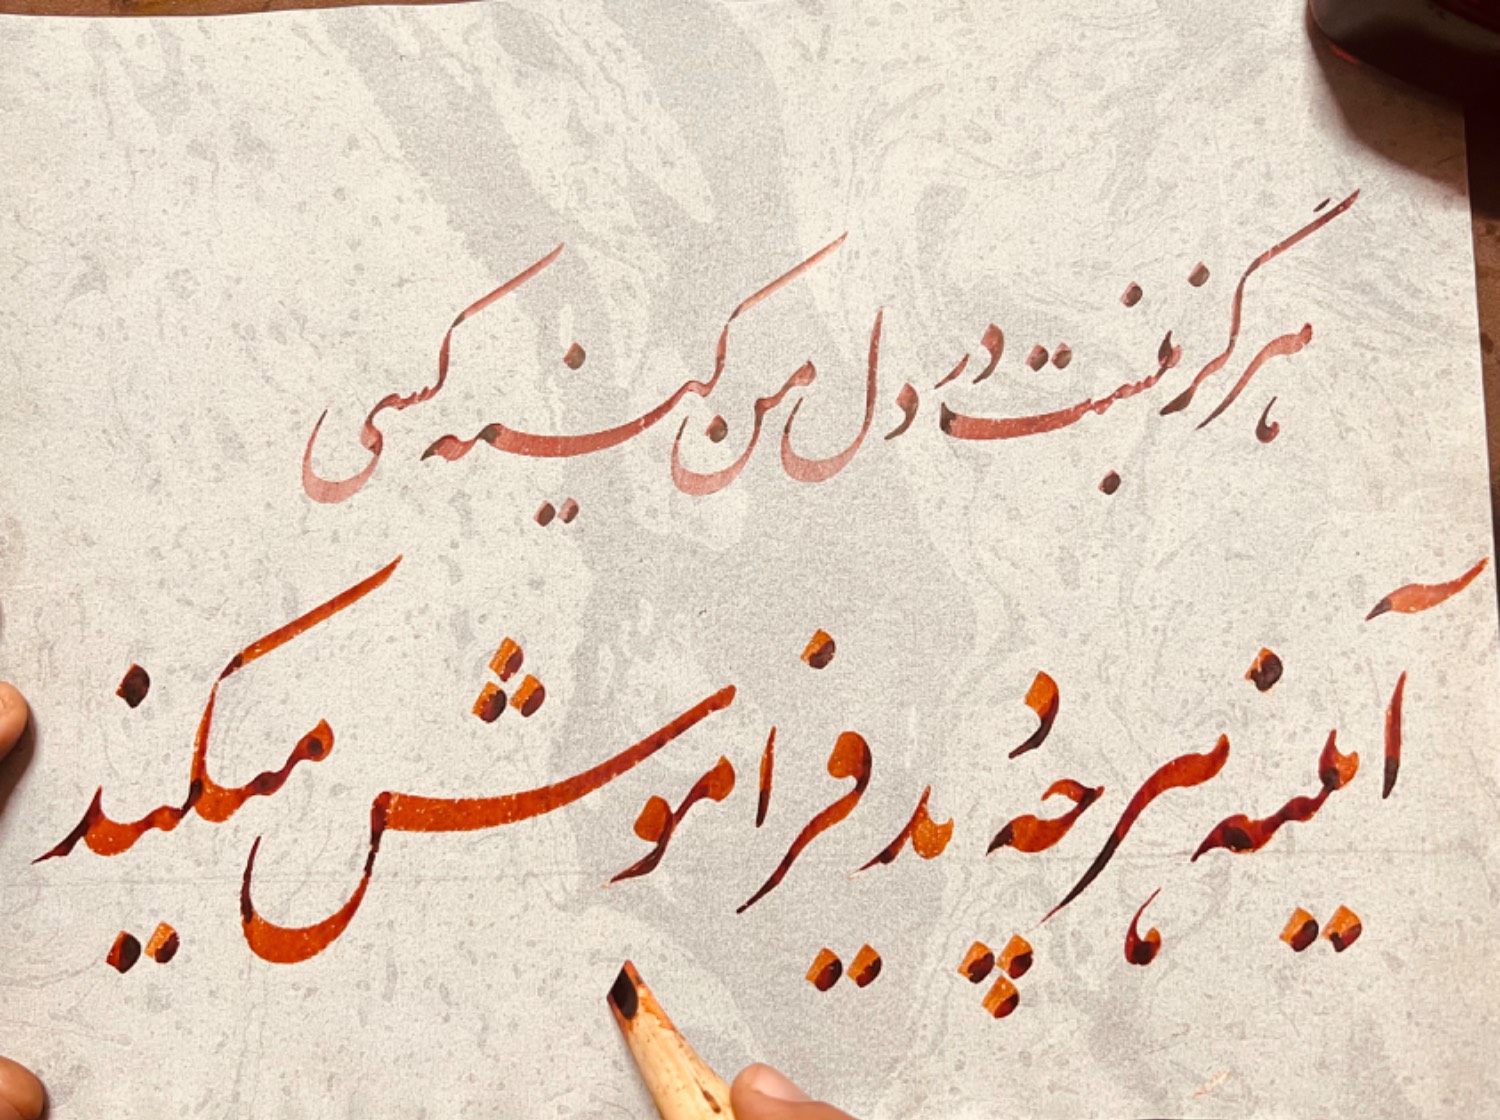 هرگز نبست در دل من کینه کسی
آینه هرچه دید فراموش میکند